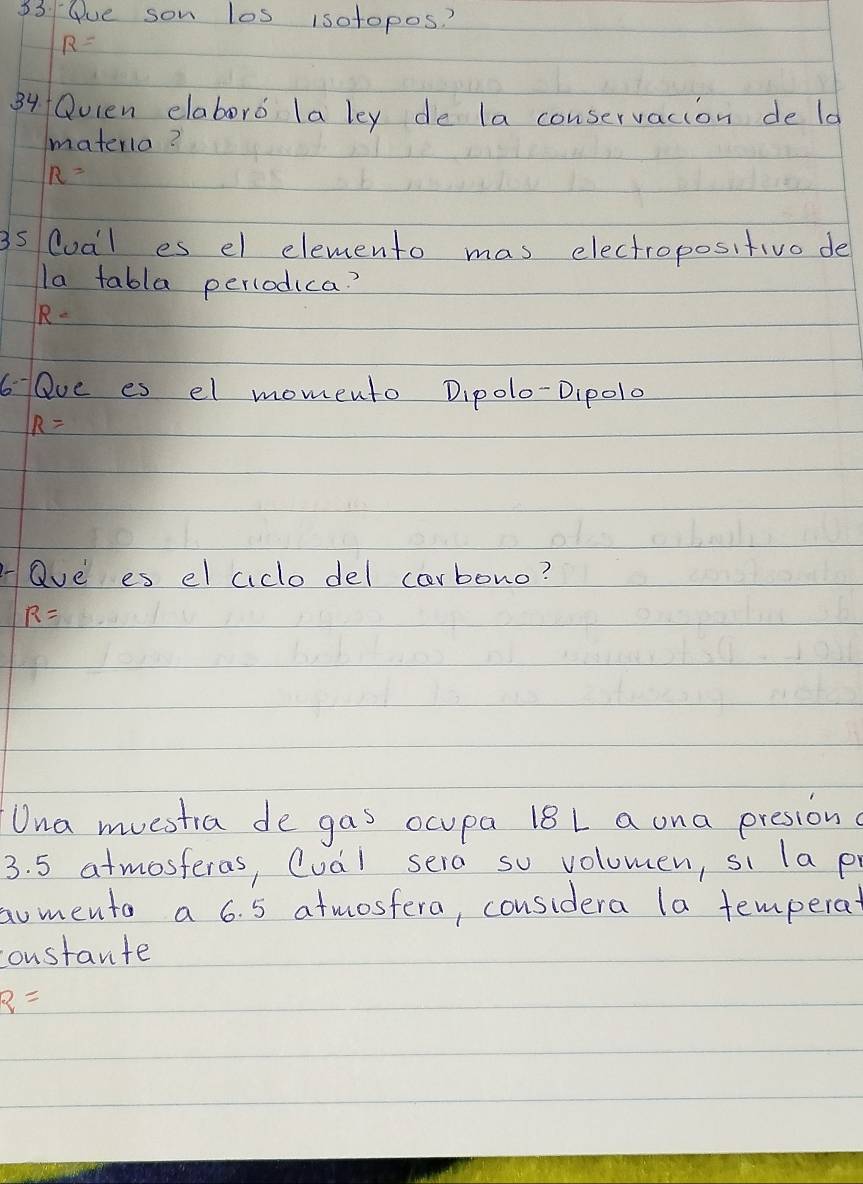 33-Que son los isotopos?
R=
34-Quien elaboró la ley de la conservación de la
materia?
R=
35 Cuál es el elemento mas electropositivo de
la tabla periodica?
R=
6-Que es el momento Dipolo-Dipolo
R=
Qué es el ciclo del carbono?
R=
Una muestra de gas ocupa 18 L a una presión
3.5 atmosferas, Cuál sera su volumen, si la pr
aumento a 6.5 atmosfera, considera la temperat
constante
R=